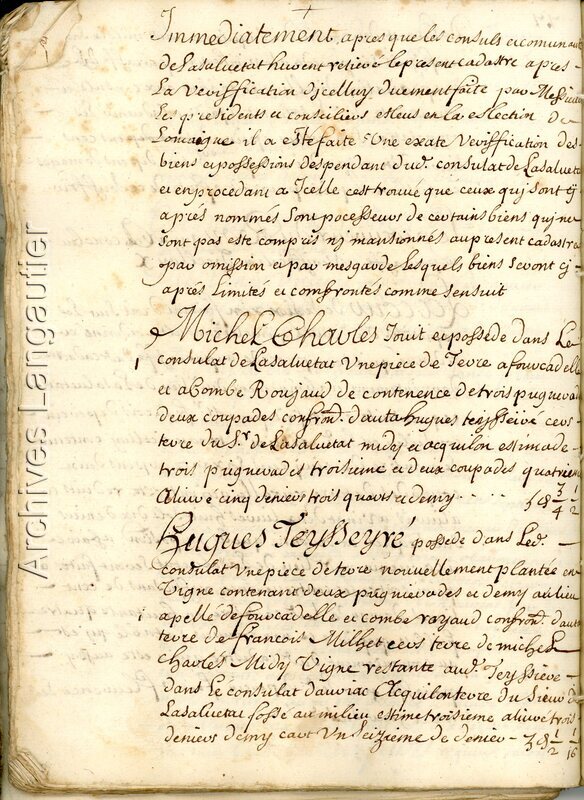 Immediatement apres que les consuls et comunauté
de Lasaluetat hurent retiré le present cadastre apres
La veriffication d'jcelluy duement faite par Messieurs
Les presidents et conseiliers esleus en la eslection de
Lomaigne il a esté faite Une exate veriffication des
biens et possessions despendant dud. consulat de Lasaluetat
et en procedant a Icelle c'est trouué que ceux quj sont cj
aprés nommés Sont pocesseurs de certains biens quj ne
Sont pas esté compris nj mansionnés au present cadastre
par omission et par mesgarde Lesquels biens Seront cj
aprés Limités et confrontés comme sensuit
Michel Charles Jouit et possede dans Le
1 consulat de Lasaluetat Vne piece de Terre a fourcadelle
et a Combe Roujaud de contenence de trois pugnerades
deux coupades confron.t d'auta hugues teysseiré cers
terre du S.r de Lasaluetat midy et acquilon estimade
trois pugnerades troisieme et deux coupades quatrieme
aliuré cinq deniers trois quars et demy 5 d 3/4 1/2
Hugues Teysseyré possede dans Led.
consulat Vne piece de terre nouuellement plantée en
Vigne contenant deux pugnerades et demy au lieu
1 apellé de fourcadelle et combe royaud confron.t d'auta
terre de francois Milhet cers terre de michel
Charlés Midy Vigne restante aud. Teyssiere
dans Lé consulat dauriac Acquilon terre du Sieur de
Lasaluetat fossé au milieu estimé troisieme aliuré trois
deniers demy cart Vn Seizieme de denier 3 d 1/2 1/16
Archives Langautier